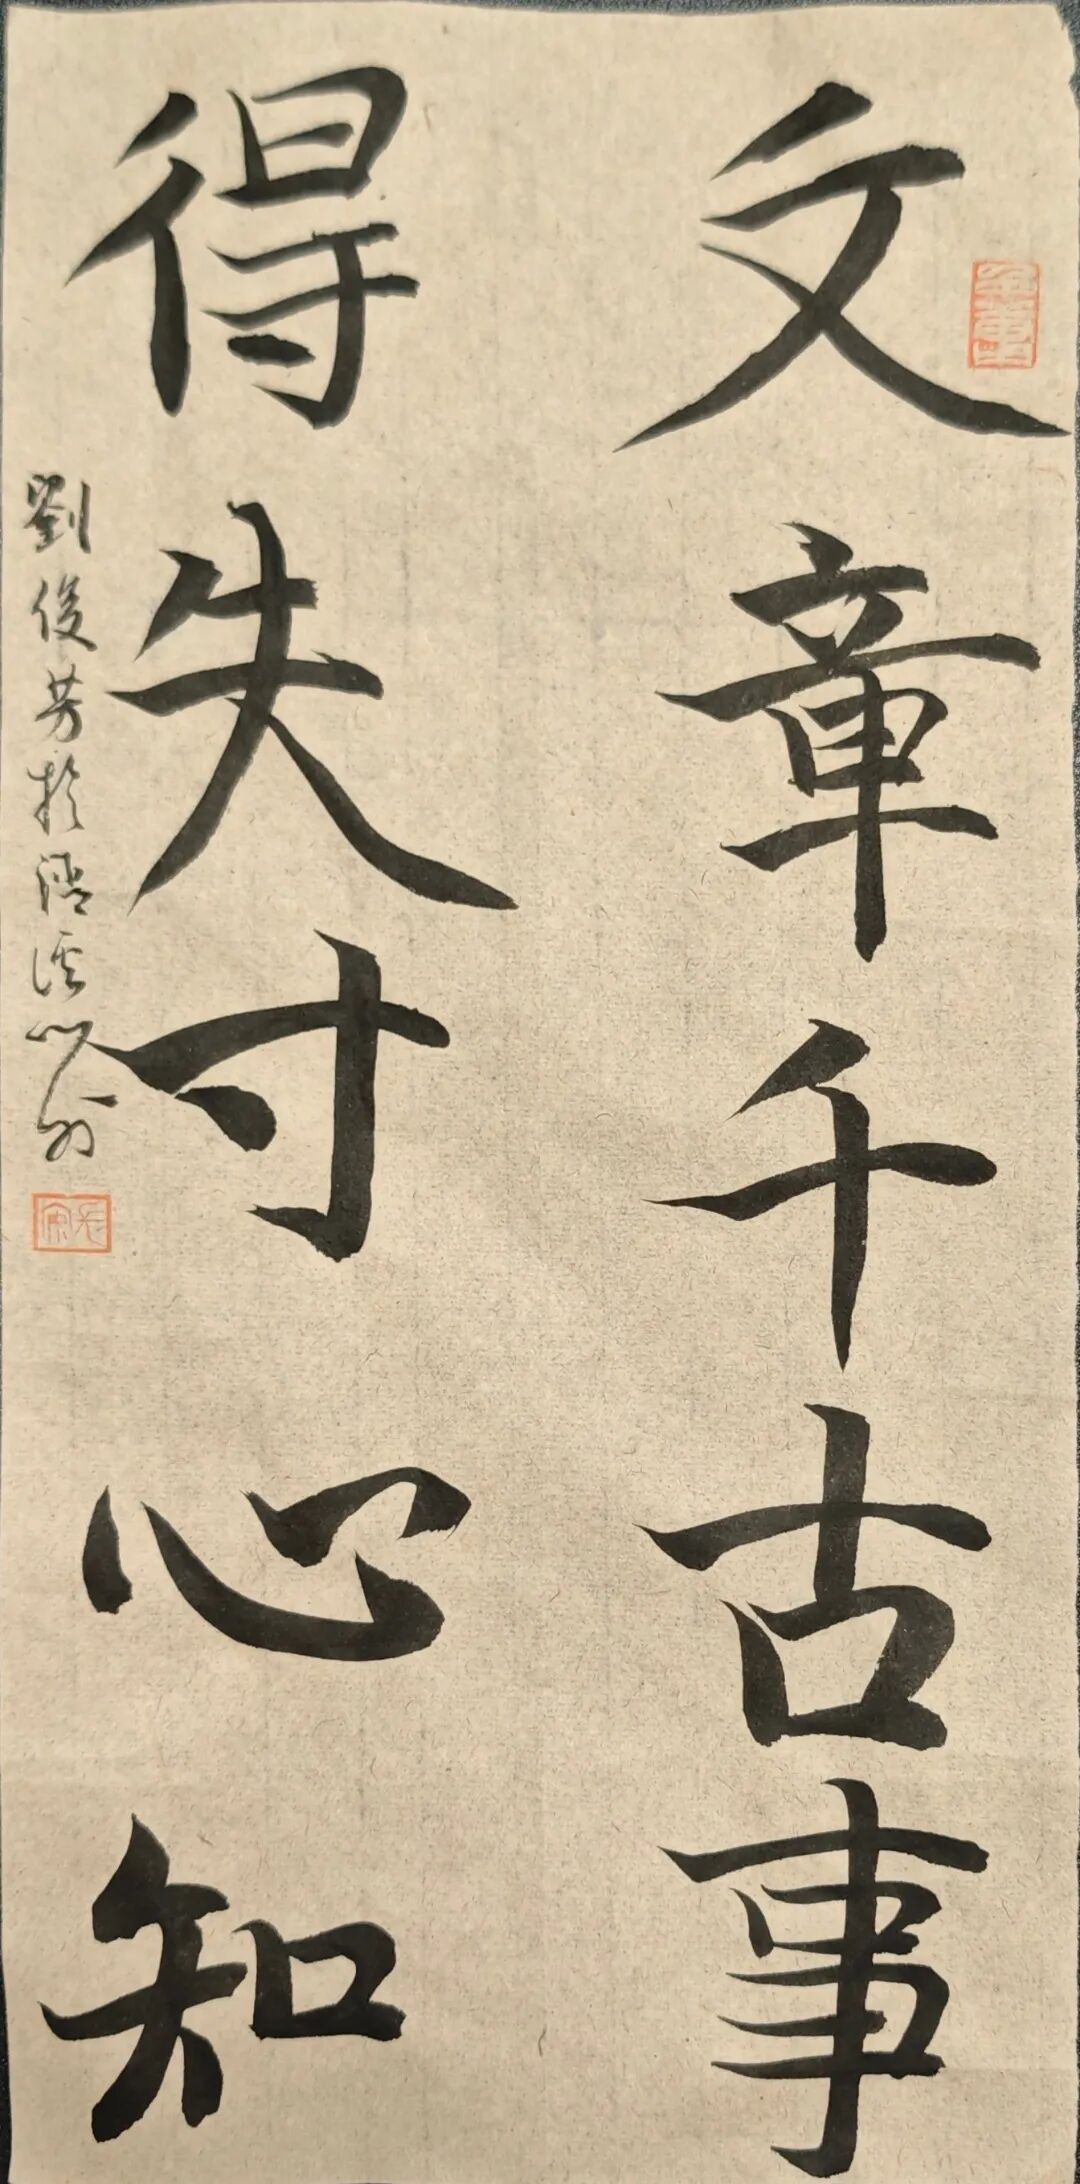 文章千古事
得失寸心知
劉俊芳於